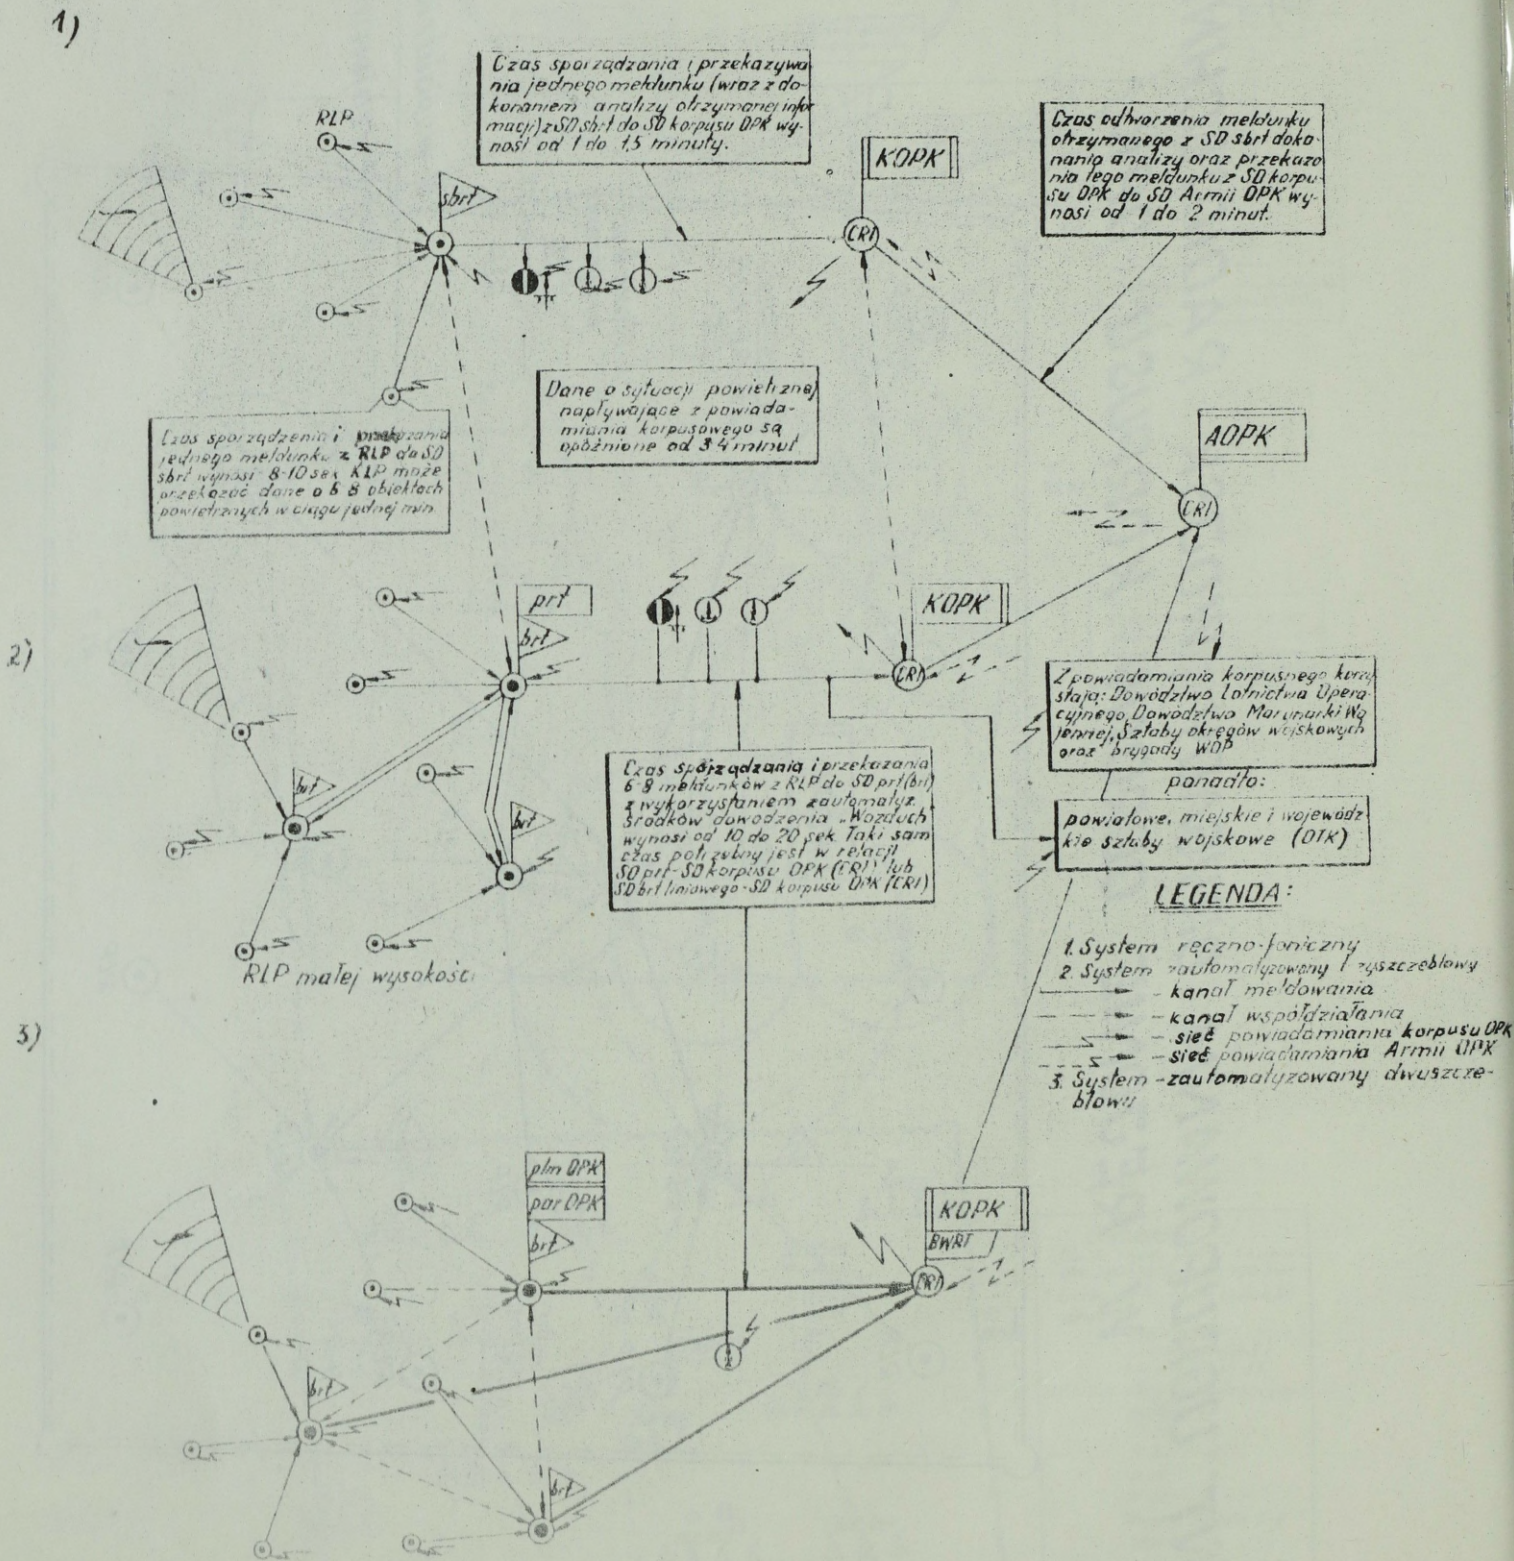 1)
Czas sporządzania i przekazywa
nia jednego meldunku (wraz z do-
konaniem analizy otrzymanej infor
macji) z SD sbrt do SD korpusu OPK wy-
nosi od 1 do 1,5 minuty.
RLP
sbrt
KOPK
CRI
Czas odtworzenia meldunku
otrzymanego z SD sbrt doko-
nania analizy oraz przekaza
nia tego meldunku z SD korpu-
su OPK do SD Armii OPK wy-
nosi od 1 do 2 minut.
Dane o sytuacji powietrznej
napływające z powiada-
miania korpusowego są
opóźnione od 3 4 minut
Czas sporządzenia i przekazania
jednego meldunku z RLP do SD
sbrt wynosi 8-10 sek RLP może
przekazać dane o 6 8 obiektach
powietrznych w ciągu jednej min
AOPK
CRI
2)
prt
brt
KOPK
CRI
brt
brt
RLP małej wysokości
Czas sporządzania i przekazania
6-8 meldunków z RLP do SD prt (brt)
z wykorzystaniem zautomatyz.
środków dowodzenia "Wozduch
wynosi od 10 do 20 sek. Taki sam
czas potrzebny jest w relacji
SD prt-SD korpusu OPK (CRI) lub
SD brt liniowego-SD korpusu OPK (CRI)
Z powiadamiania korpusnego korzy
stają: Dowództwo Lotnictwa Opera-
cyjnego, Dowództwo Marynarki Wo
jennej, Sztaby okręgów wojskowych
oraz brygady WOP
ponadto:
powiatowe, miejskie i wojewódz
kie sztaby wojskowe (OTK)
LEGENDA:
1. System ręczno-foniczny
2. System zautomatyzowany trzyszczeblowy
- kanał meldowania
- kanał współdziałania
- sieć powiadamiania korpusu OPK
- sieć powiadamiania Armii OPK
3. System - zautomatyzowany dwuszcze-
blowy
3)
plm OPK
par OPK
brt
KOPK
BWRT
CRI
brt
brt